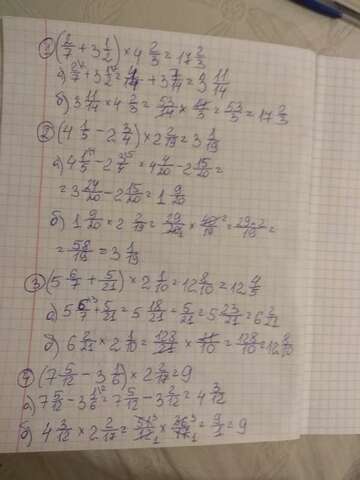 1) (2/7 + 3 1/2) × 4 2/3 = 17 2/3
а) 2/7 + 3 1/2 = 4/14 + 3 7/14 = 3 11/14
б) 3 11/14 × 4 2/3 = 53/14 × 14/3 = 53/3 = 17 2/3
2) (4 1/5 - 2 3/4) × 2 2/19 = 3 1/19
а) 4 1/5 - 2 3/4 = 4 4/20 - 2 15/20 =
= 3 24/20 - 2 15/20 = 1 9/20
б) 1 9/20 × 2 2/19 = 29/20 × 40/19 = 29·2/19 =
= 58/19 = 3 1/19
3) (5 6/7 + 5/21) × 2 1/10 = 12 8/10 = 12 4/5
а) 5 6/7 + 5/21 = 5 18/21 + 5/21 = 5 23/21 = 6 2/21
б) 6 2/21 × 2 1/10 = 128/21 × 21/10 = 128/10 = 12 8/10
4) (7 5/12 - 3 1/6) × 2 2/17 = 9
а) 7 5/12 - 3 1/6 = 7 5/12 - 3 2/12 = 4 3/12
б) 4 3/12 × 2 2/17 = 51/12 × 36/17 = 9/1 = 9